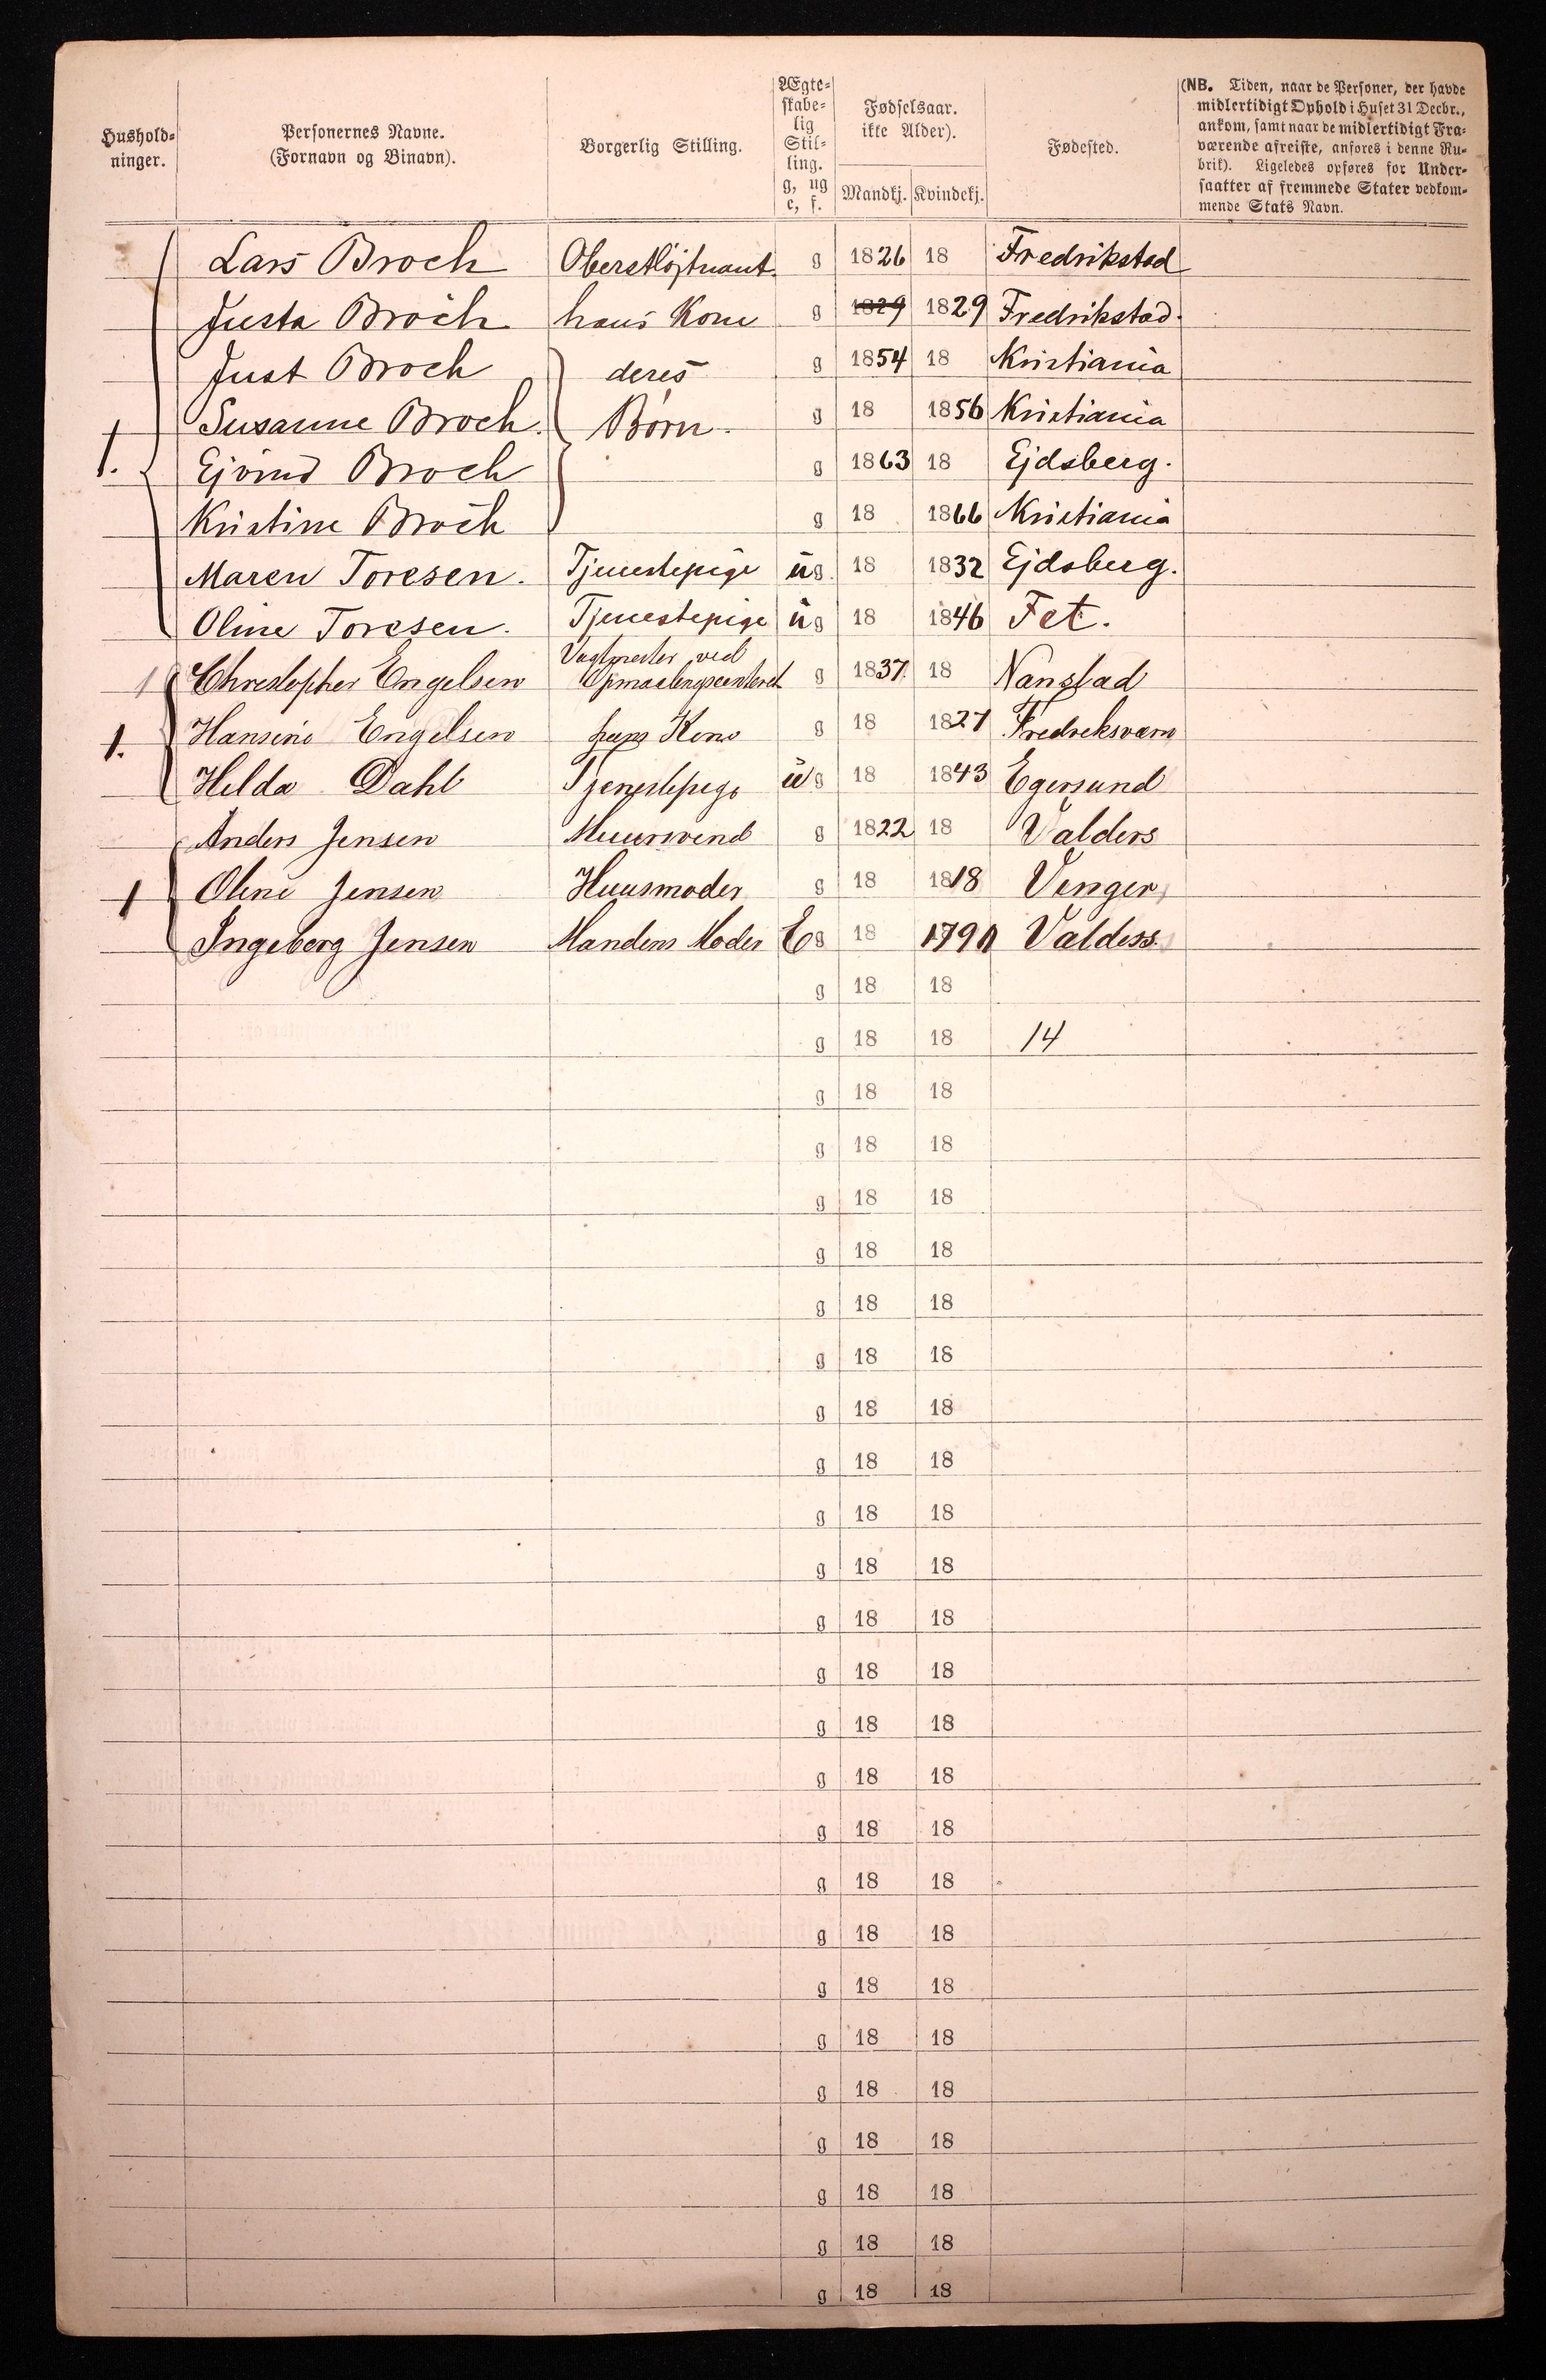 Hushold-
ninger.
Personernes Navne.
(Fornavn og Binavn).
Borgerlig Stilling.
Ægte-
skabe-
lig
Stil-
ling.
g, ug
e, f.
Fødselsaar.
ikke Alder).
Mandkj. Kvindekj.
Fødested.
(NB. Tiden, naar de Personer, der havde
midlertidigt Ophold i Huset 31 Decbr.,
ankom, samt naar de midlertidigt Fra-
værende afreiste, anføres i denne Ru-
brik). Ligeledes opføres for Under-
saatter af fremmede Stater vedkom-
mende Stats Navn.
Lars Broch Oberstløjtnant. g 1826 18 Fredrikstad
Justa Broch hans Kone g 1829 1829 Fredrikstad.
Just Broch deres g 1854 18 Kristiania
Susanne Broch. Børn. g 18 1856 Kristiania
1. Ejvind Broch g 1863 18 Ejdsberg.
Kristine Broch g 18 1866 Kristiania
Maren Toresen. Tjenestepige ug. 18 1832 Ejdsberg.
Oline Toresen. Tjenestepige ug 18 1846 Fet.
Vagtmester ved
Christopher Engelsen Opmaalingscontoret g 1837. 18 Nanstad
1. Hansine Engelsen hans Kone g 18 1827 Fredreksværn
Hilda Dahl Tjenestepige ug 18 1843 Egersund
Anders Jensen Muursvend g 1822 18 Valders
1 Oline Jensen Huusmoder g 18 1818 Vinger
Ingeborg Jensen Mandens Moder Eg 18 1790 Valders.
g 18 18
g 18 18 14
g 18 18
g 18 18
g 18 18
g 18 18
g 18 18
g 18 18
g 18 18
g 18 18
g 18 18
g 18 18
g 18 18
g 18 18
g 18 18
g 18 18
g 18 18
g 18 18
g 18 18
g 18 18
g 18 18
g 18 18
g 18 18
g 18 18
g 18 18
g 18 18